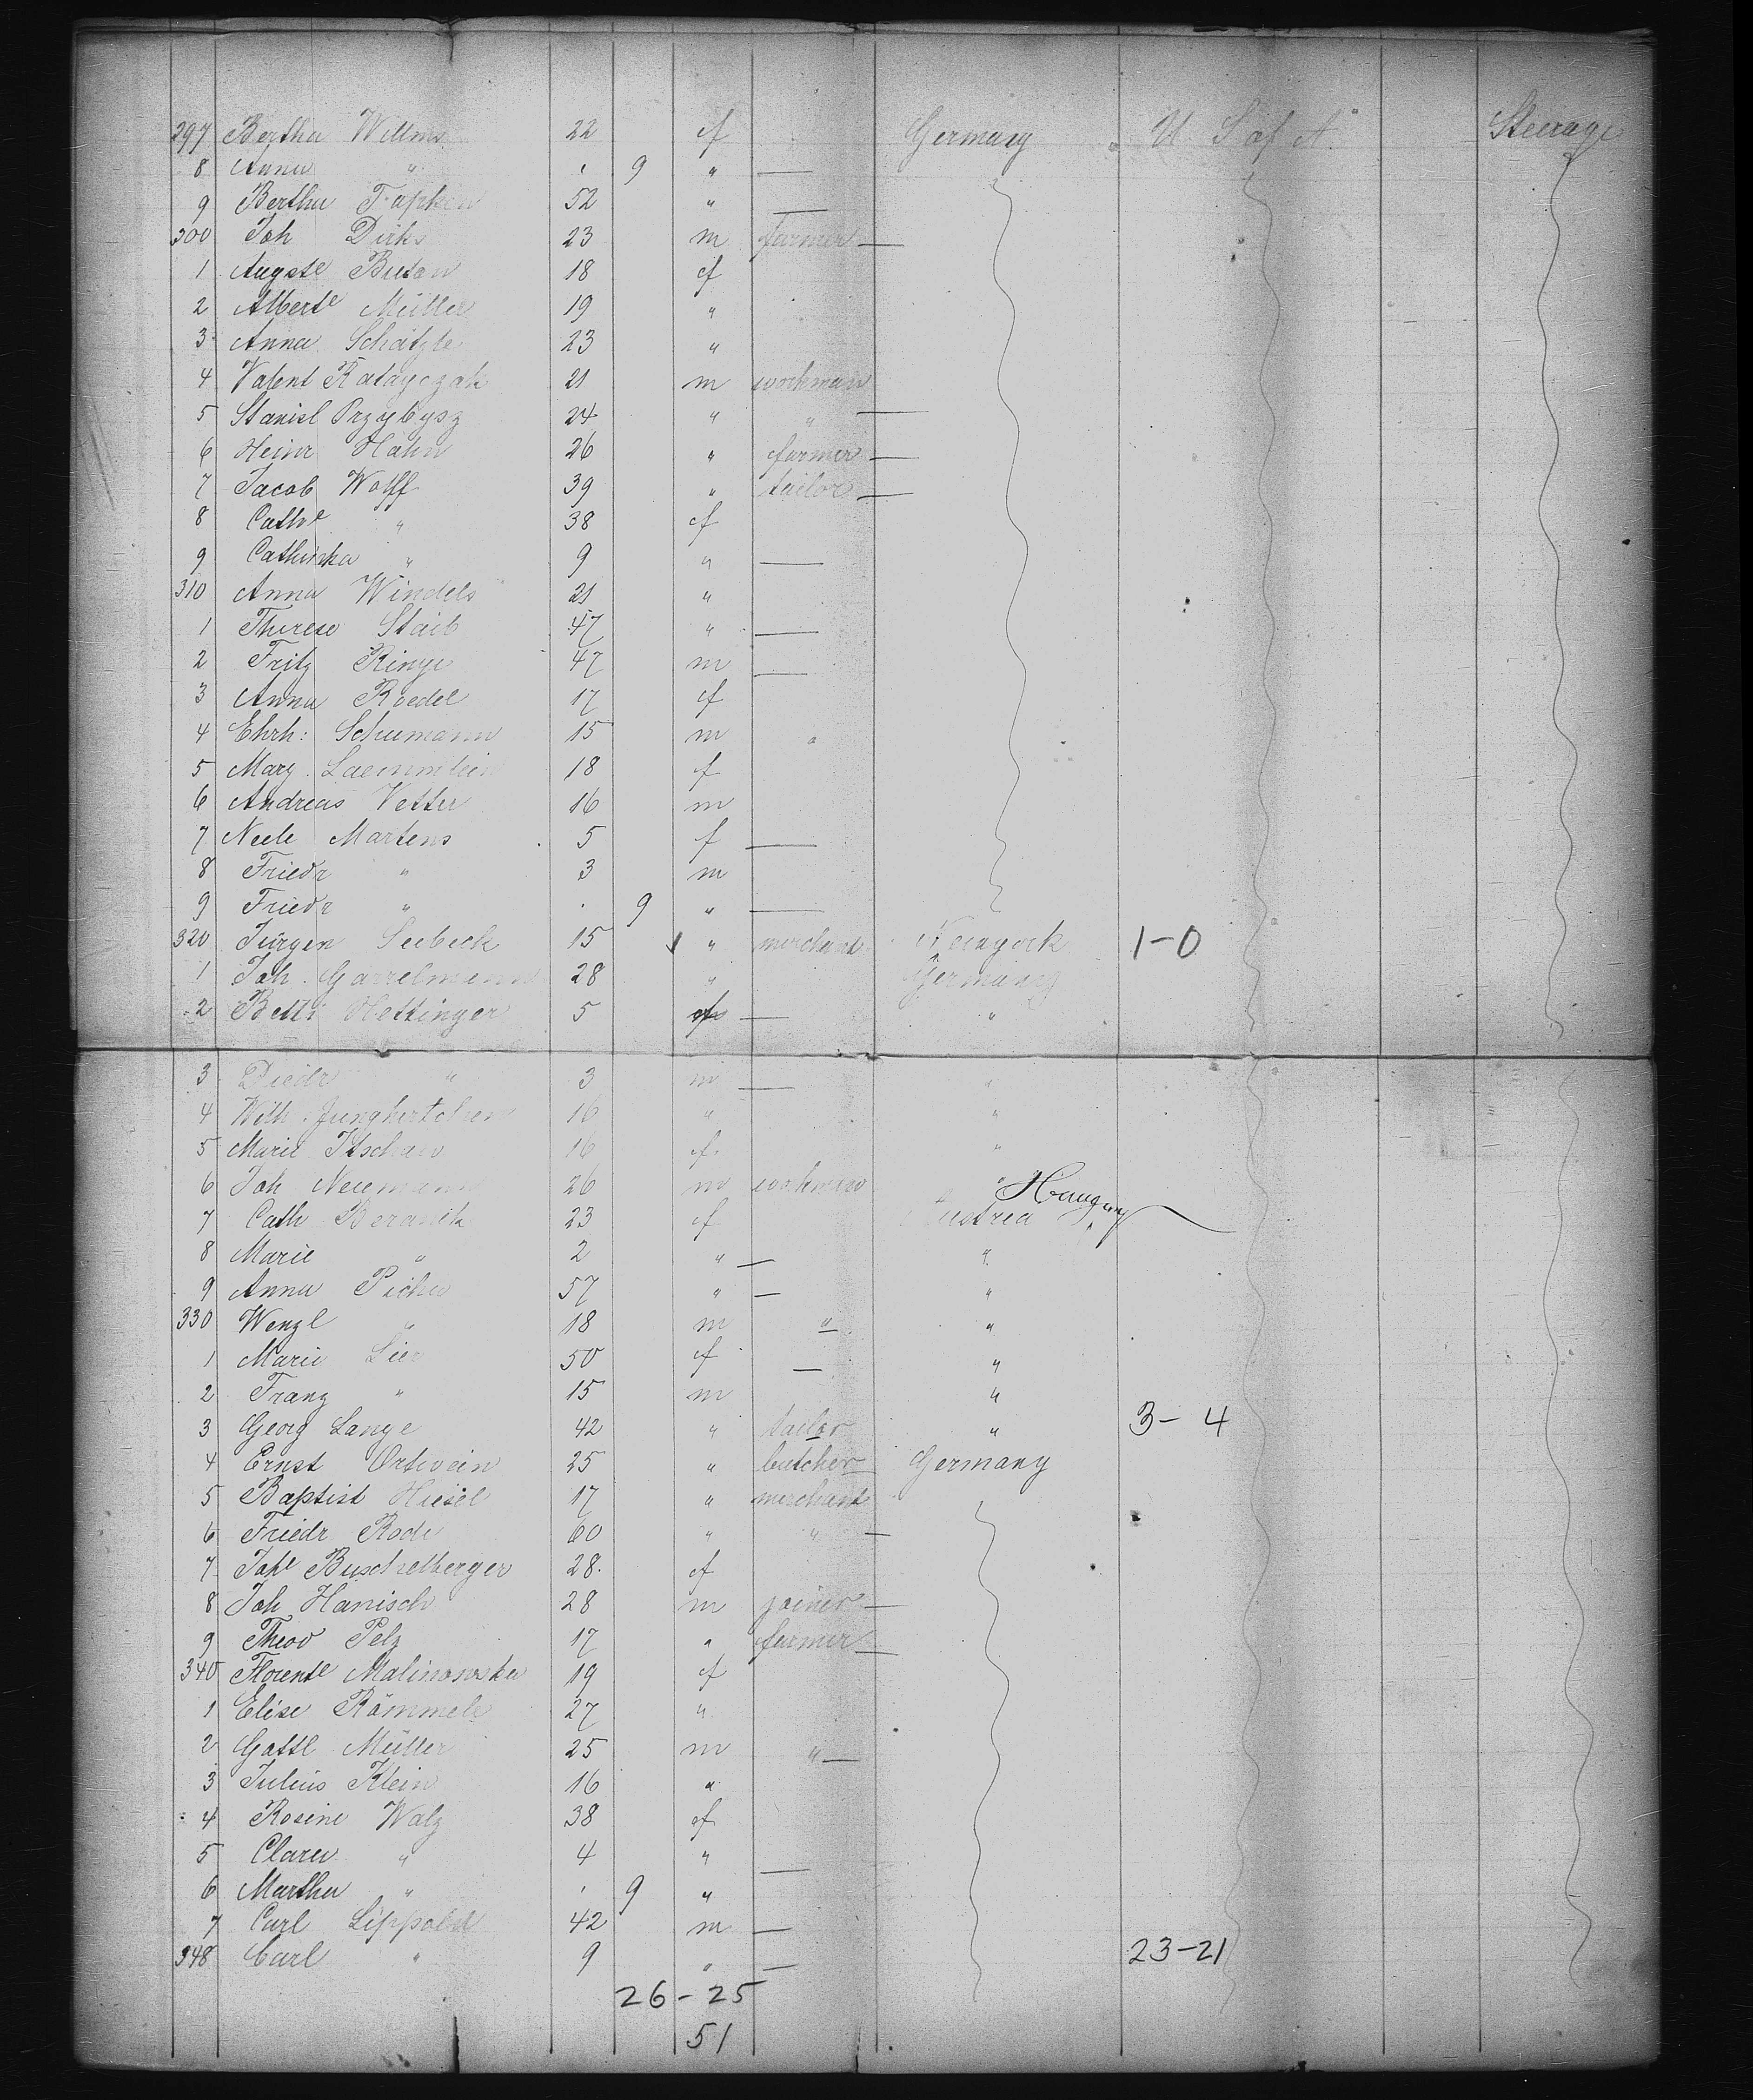 297 Bertha Willms 22 f Germany U. S of A. Steerage
8 Anna " 9 " —
9 Bertha Tapken 52 " —
300 Joh Dirks 23 m farmer —
1 Augste Butow 18 f
2 Alberte Müller 19 "
3 Anna Schätzle 23 "
4 Valent Ratayczak 21 m workman
5 Stanisl Przybysz 24 " " —
6 Heinr Hahn 26 " farmer —
7 Jacob Wolff 39 " tailor —
8 Cathe " 38 f
9 Cathinka " 9 " —
310 Anna Windels 21 "
1 Therese Staib 47 " —
2 Fritz Ringe 47 m —
3 Anna Roedel 17 f
4 Ehrh: Schumann 15 m
5 Marg. Laemmlein 18 f
6 Andreas Vetter 16 m
7 Neele Martens 5 f —
8 Friedr " 3 m
9 Friedr " 9 " —
320 Jürgen Seebeck 15 " merchant Newyork 1-0
1 Joh. Garrelmann 28 " Germany
2 Betti Hettinger 5 f — "
3 Diedr " 3 m — "
4 Wilh. Junghertchen 16 " "
5 Marie Itschan 16 f "
6 Joh Neumann 26 m workman " Hungary
7 Cath Beranek 23 f Austria "
8 Marie " 2 " — "
9 Anna Picha 57 " — "
330 Wenzl " 18 m " "
1 Marie Lier 50 f — "
2 Franz " 15 m "
3 Georg Lange 42 " tailor " 3-4
4 Ernst Ortwein 25 " butcher Germany
5 Baptist Hiesel 17 " merchant
6 Friedr Rode 60 " " —
7 Johe Buschelberger 28. f
8 Joh Hanisch 28 m joiner —
9 Theod Pelz 17 " farmer —
340 Florente Malinowska 19 f
1 Elise Römmele 27 "
2 Gottl Müller 25 m " —
3 Julius Klein 16 "
4 Rosine Walz 38 f
5 Clara " 4 " —
6 Martha " 9 "
7 Carl Lippold 42 m —
348 Carl " 9 " — 23-21
26-25
51